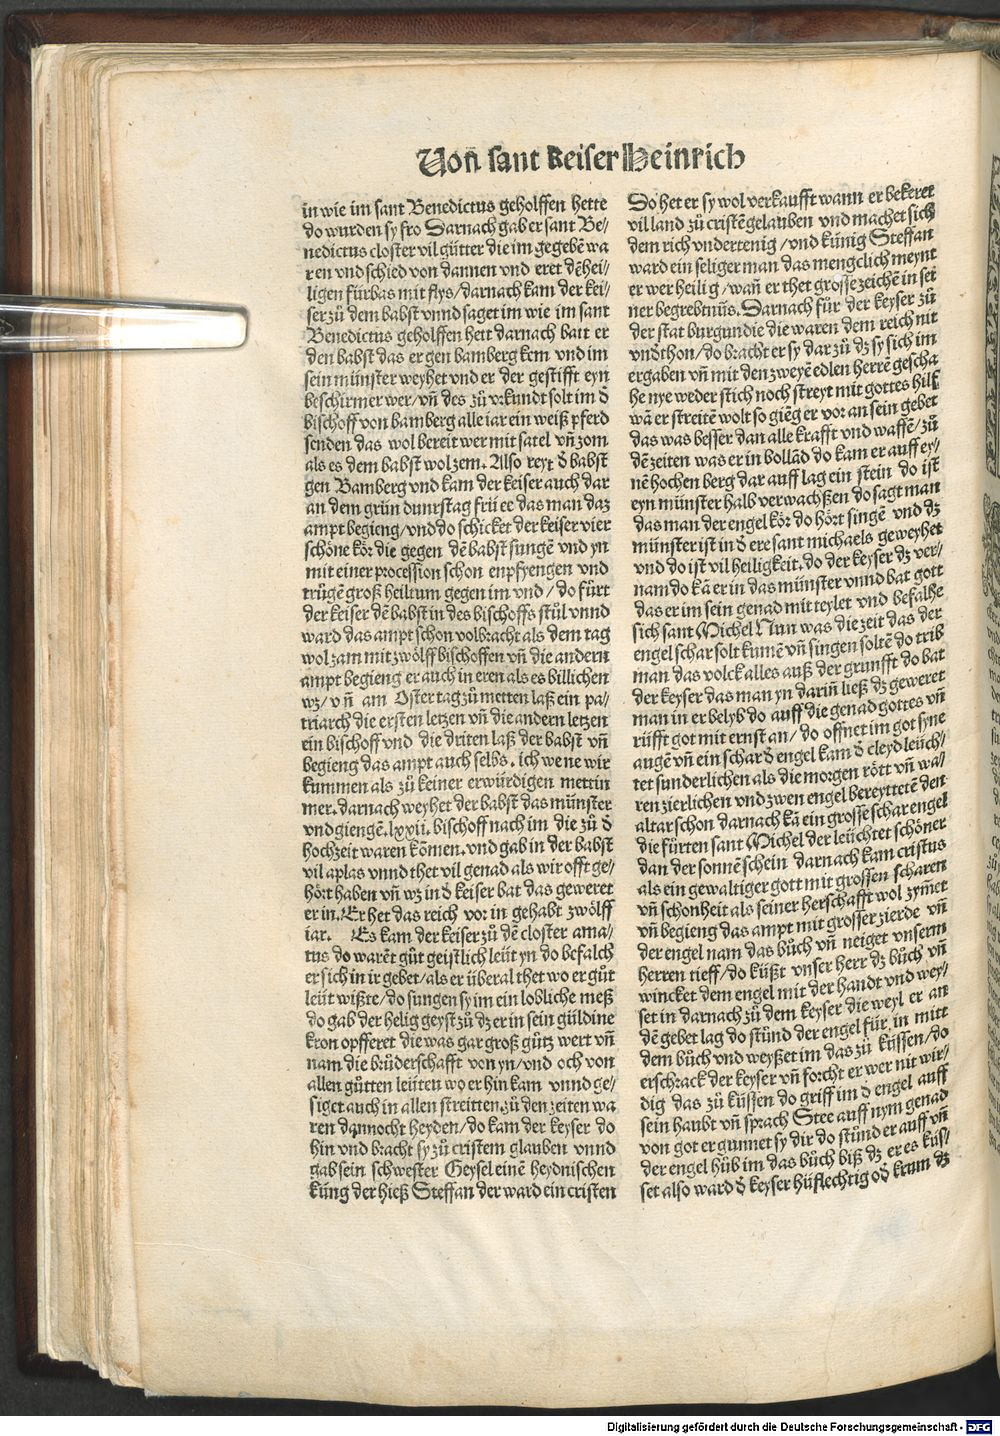 Von̄ sant Keiser Heinrich
in wie im sant Benedictus geholffen hette
do wurden sy fro Darnach gab er sant Be⸗
nedictus closter vil gütter die im gegebē wa
ren vnd schied von dannen vnd eret dē hei⸗
ligen fürbas mit flys/darnach kam der kei⸗
ser zů dem babst vnnd saget im wie im sant
Benedictus geholffen hett darnach batt er
den babst das er gen bamberg kem vnd im
sein münster weyhet vnd er der gestifft eyn
beschirmer wer/vn̄ des zů vrkundt solt im d̄
bischoff von bamberg alle iar ein weiß pferd
senden das wol bereit wer mit satel vn̄ zom
als es dem babst wol zem. Also reyt d̄ babst
gen Bamberg vnd kam der keiser auch dar
an dem grün dunrstag frü ee das man daz
ampt begieng/vnd do schicket der keiser vier
schöne kör die gegen dē babst sungē vnd yn
mit einer procession schon enpfyengen vnd
trůgē groß heiltum gegen im vnd/do fürt
der keiser dē babst in des bischoffs stůl vnnd
ward das ampt schon volbracht als dem tag
wol zam mit zwölff bischoffen vn̄ die andern
ampt begieng er auch in eren als es billichen
wz/vn̄ am Oster tag zů metten laß ein pa⸗
triarch die ersten letzen vn̄ die andern letzen
ein bischoff vnd die driten laß der babst vn̄
begieng das ampt auch selbs. ich wene wir
kummen als zů keiner erwürdigen mettin
mer. darnach weyhet der babst das münster
vnd giengē. lxxii. bischoff nach im die zů d̄
hochzeit waren kōmen. vnd gab in der babst
vil aplas vnnd thet vil genad als wir offt ge⸗
hört haben vn̄ wz in d̄ keiser bat das geweret
er in. Er het das reich vor in gehabt zwölff
iar. Es kam der keiser zů dē closter ama⸗
tus do warēt gůt geistlich leüt yn do befalch
er sich in ir gebet/als er überal thet wo er gůt
leüt wißte/do sungen sy im ein lobliche meß
do gab der helig geyst zů dz er in sein güldine
kron opfferet die was gar groß gůtz wert vn̄
nam die brüderschafft von yn/vnd och von
allen gůtten leüten wo er hin kam vnnd ge⸗
siget auch in allen streitten. zů den zeiten wa
ren dannocht heyden/do kam der keyser do
hin vnd bracht sy zů cristem glauben vnnd
gab sein schwester Geysel einē heydnischen
küng der hieß Steffan der ward ein cristen
Do het er sy wol verkaufft wann er bekeret
vil land zů cristē gelauben vnd machet sich
dem rich vndertenig/vnd künig Steffan
ward ein seliger man das mengclich meynt
er wer heilig/wan̄ er thet grosse zeichē in sei
ner begrebtnüs. Darnach für der keyser zů
der stat burgundie die waren dem reich nit
vnd̄thon/do bracht er sy dar zů dz sy sich im
ergaben vn̄ mit den zweyē edlen herrē gescha
he nye weder stich noch streyt mit gottes hilf
wā er streitē wolt so giēg er vor an sein gebet
das was besser dan alle krafft vnd waffē/zů
dē zeiten was er in bollād do kam er auff ey⸗
nē hochen berg dar auff lag ein stein do ist
eyn münster halb verwachßen do sagt man
das man der engel kör do hört singē vnd dz
münster ist in d̄ ere sant michaels geweyhet
vnd do ist vil heiligkeit. do der keyser dz ver⸗
nam do kā er in das münster vnnd bat gott
das er im sein genad mit teylet vnd befalhe
sich sant Michel Nun was die zeit das der
engel schar solt kumē vn̄ singen soltē do trib
man das volck alles auß der grunfft do bat
der keyser das man yn darin̄ ließ dz geweret
man in er belyb do auff die genad gottes vn̄
rüfft got mit ernst an/do offnet im got syne
augē vn̄ ein schar d̄ engel kam d̄ cleyd leüch⸗
tet sunderlichen als die morgen rött vn̄ wa⸗
ren zierlichen vnd zwen engel bereyttetē den
altar schon darnach kā ein grosse schar engel
die fürten sant Michel der leüchtet schöner
dan der sonnē schein darnach kam cristus
als ein gewaltiger gott mit grossen scharen
vn̄ schonheit als seiner herschafft wol zym̄et
vn̄ begieng das ampt mit grosser zierde vn̄
der engel nam das bůch vn̄ neiget vnserm
herren tieff/do küßt vnser herr dz bůch vn̄
wincket dem engel mit der handt vnd wey⸗
set in darnach zů dem keyser die weyl er an
dē gebet lag do stůnd der engel für in mitt
dem bůch vnd weyßet im das zů küssen/do
erschrack der keyser vn̄ forcht er wer nit wir⸗
dig das zů küssen do griff im d̄ engel auff
sein haubt vn̄ sprach Stee auff nym genad
von got er gunnet sy dir do stůnd er auff vn̄
der engel hůb im das bůch biß dz er es küs⸗
set also ward d̄ keyser hüflechtig od̄ krum dz
Digitalisierung gefördert durch die Deutsche Forschungsgemeinschaft - DFG